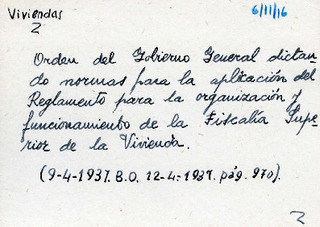 Viviendas
6/11/16
2
Orden del Gobierno General dictan-
do normas para la aplicación del
Reglamento para la organización y
funcionamiento de la Fiscalía Supe-
rior de la Vivienda.
(9-4-1937. B.O. 12-4-1937. pág. 970).
2